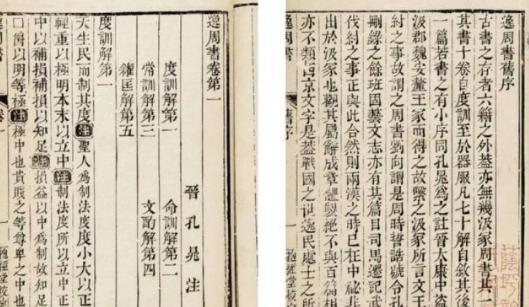 逸周書舊序
古書之存者六籍之外葢亦無幾汲冢周書其
其書十卷自度訓至於器服凡七十解自敘其後
一篇若書之有小序同孔晁爲之註晉太康中盜
汲郡魏安釐王冢而得之故繫之汲冢所言文王
紂之事故謂之周書劉向謂是周時誓誥號令孔
刪錄之餘班固藝文志亦有其篇目司馬遷記武
伐紂之事正與此合然則兩漢之時已在中祕非
出於汲冢也觀其屬辭成章體製絶不與百篇相
亦不類西京文字是葢戰國之世逸民處士之所
舊序
逸周書卷第一
晉孔晁注
度訓解第一 命訓解第二
常訓解第三 文酌解第四
糴匡解第五
天生民而制其度注聖人爲制法度度小大以正
輕重以極明本末以立中注制法度所以立中正
中以補損補損以知足注損益以中爲制故知足
□爵以明等極注極中也貴賤之等尊卑之中也
卷一
抱經堂校定